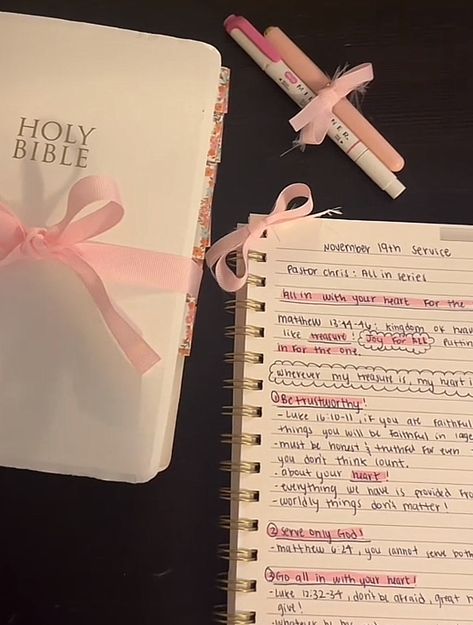 HOLY
BIBLE
November 19th Service
Pastor Chris: All in series
All in with your heart For the
matthew 13:44-46: kingdom of
like treasure! Joy for all
in for the one.
wherever my treasure is, my heart
① Be trustworthy!
- Luke 16:10-11, if you are faithful
things you will be faithful in
- must be honest & truthful for even
you don't think count.
- about your heart!
- everything we have is provided
- worldly things don't matter!
② Serve only God!
- matthew 6:24, you cannot serve both
③ Go all in with your heart!
- Luke 12:32-34, don't be afraid, great
give!